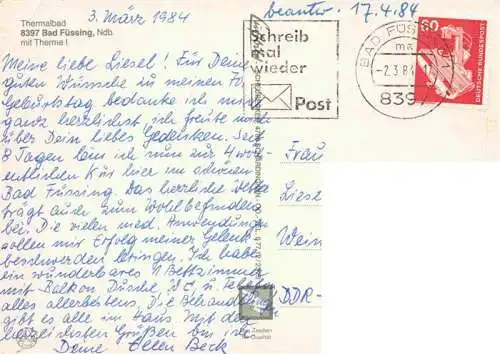 Thermalbad
8397 Bad Füssing, Ndb.
mit Therme I
3. März 1984
beantw. 17.4.84
Schreib
mal
wieder
Post
BAD FÜSSING 1
ma
-2.3.84
8397
60
DEUTSCHE BUNDESPOST
Meine liebe Liesel! Für Deine
guten Wünsche zu meinen 70.
Geburtstag bedanke ich mich
ganz herzlichst ich freute mich
über Dein liebes Gedenken. Seit
8 Tagen bin ich nun zur 4 wöch-
entlichen Kur hier im schönen
Bad Füssing. Das herrliche Wetter
trägt auch zum Wohlbefinden
bei. Die vielen med. Anwendungen
sollen mir Erfolg meiner Gelenk
beschwerden bringen. Ich habe
ein wunderbares 1 Bettzimmer
mit Balkon Dusche, WC u. Telefon
alles allerbestens. Die Behandlungen
gibt es alle im Haus. Mit den
herzlichsten Grüßen bin ich
Deine Ellen Beck
Frau
Liese
Wein
DDR-